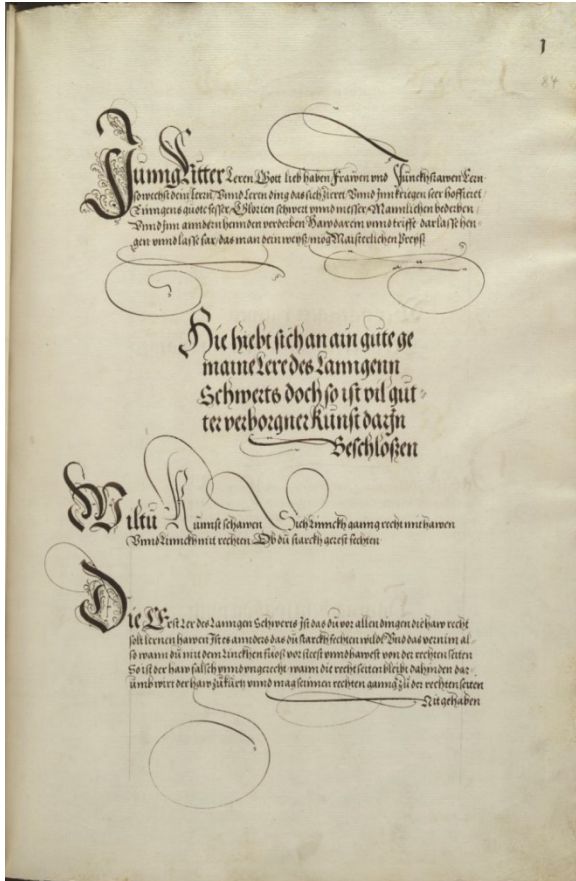 1
84
Junng Ritter Leren Gott lieb haben Frawen vnd Junckhfrawen Eern
so wechst dein Leren Vnnd Leren ding das sich zieret Vnnd jnn kriegen seer hoffieret
Ringens guote fesser Glorien schwert vnnd messer Mannlichen bederben
Vnnd jnn anndern hennden verderben Haw darein vnnd trifft dar lasse hen
gen vnnd lasse far das man dein weyß mög Maisterlichen Preyß
Hie hiebt sich an ain gute ge
maine Lere des Lanngenn
Schwerts doch so ist vil gut
ter verborgner Kunst darJn
Beschloßen
Wiltu Kunnst schawen Sich Linnckh ganng recht mit hawen
Vnnd Linnckh mit rechten Ob du starckh gerest fechten
Die Erst Ler des Lanngen Schwerts Jst das du vor allen dingen die haw recht
solt lernen hawen Jst es annders das du starckh fechten wildt Vnd das vernim al
so wann du mit dem Linckhen fuoß vor steest vnnd hawest von der rechten seiten
So ist der haw falsch vnnd vngerecht wann die recht seiten bleibt dahinden dar
umb wirt der haw zukurtz vnnd mag seinnen rechten ganng zu der rechten seiten
Nit gehaben